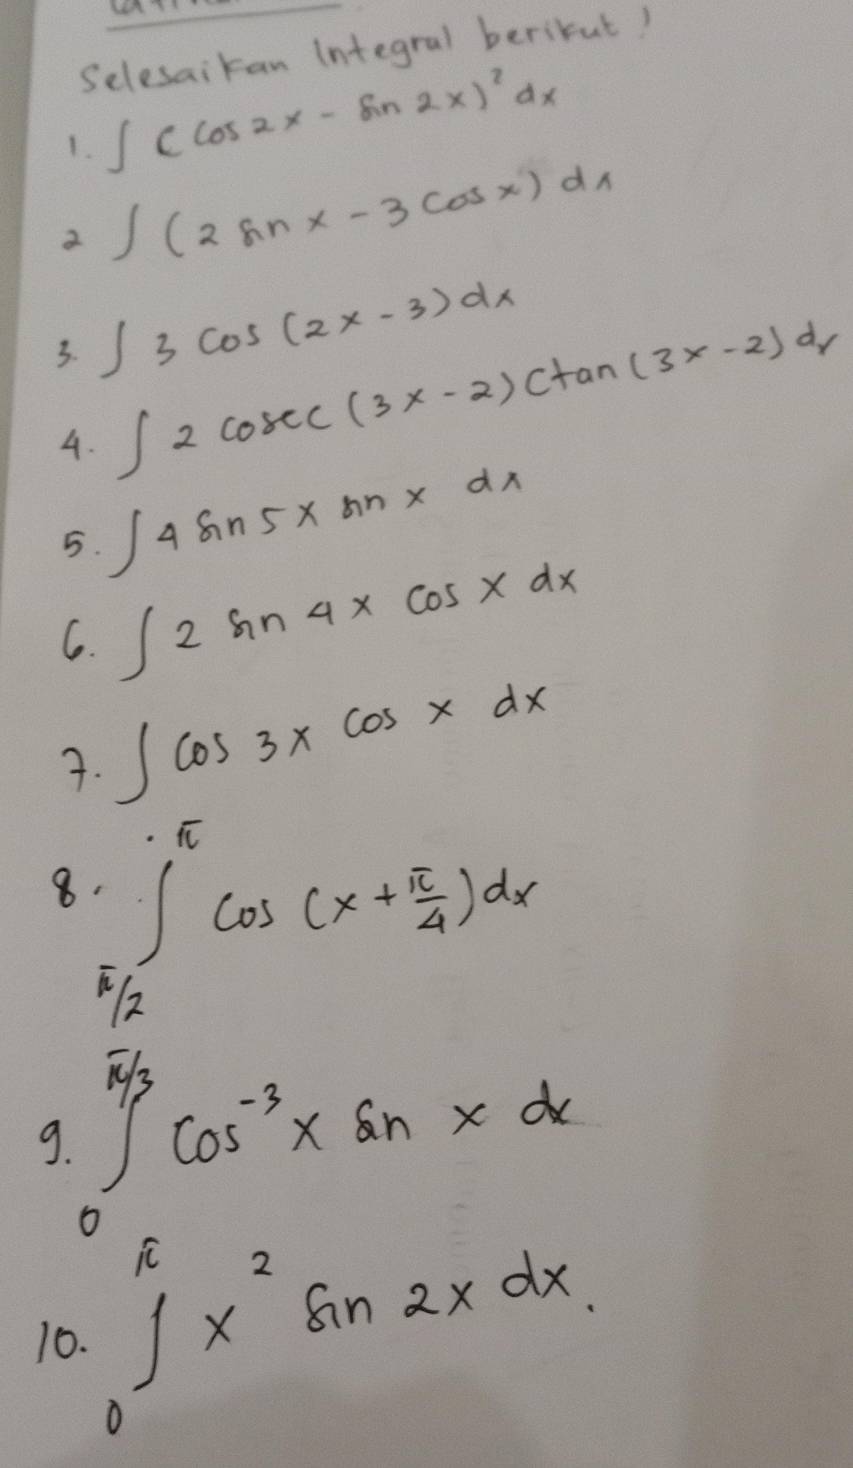 Selesaikan Integral berikut!
1. ∫ (cos 2x - sin 2x)² dx
2 ∫ (2 sin x - 3 cos x) dx
3. ∫ 3 cos (2x - 3) dx
4. ∫ 2 cosec (3x - 2) ctan (3x - 2) dx
5. ∫ 4 sin 5x sin x dx
6. ∫ 2 sin 4x cos x dx
7. ∫ cos 3x cos x dx
8. ∫_{π/2}^{π} cos (x + π/4) dx
9. ∫_{0}^{π/3} cos⁻³ x sin x dx
10. ∫_{0}^{π} x² sin 2x dx.